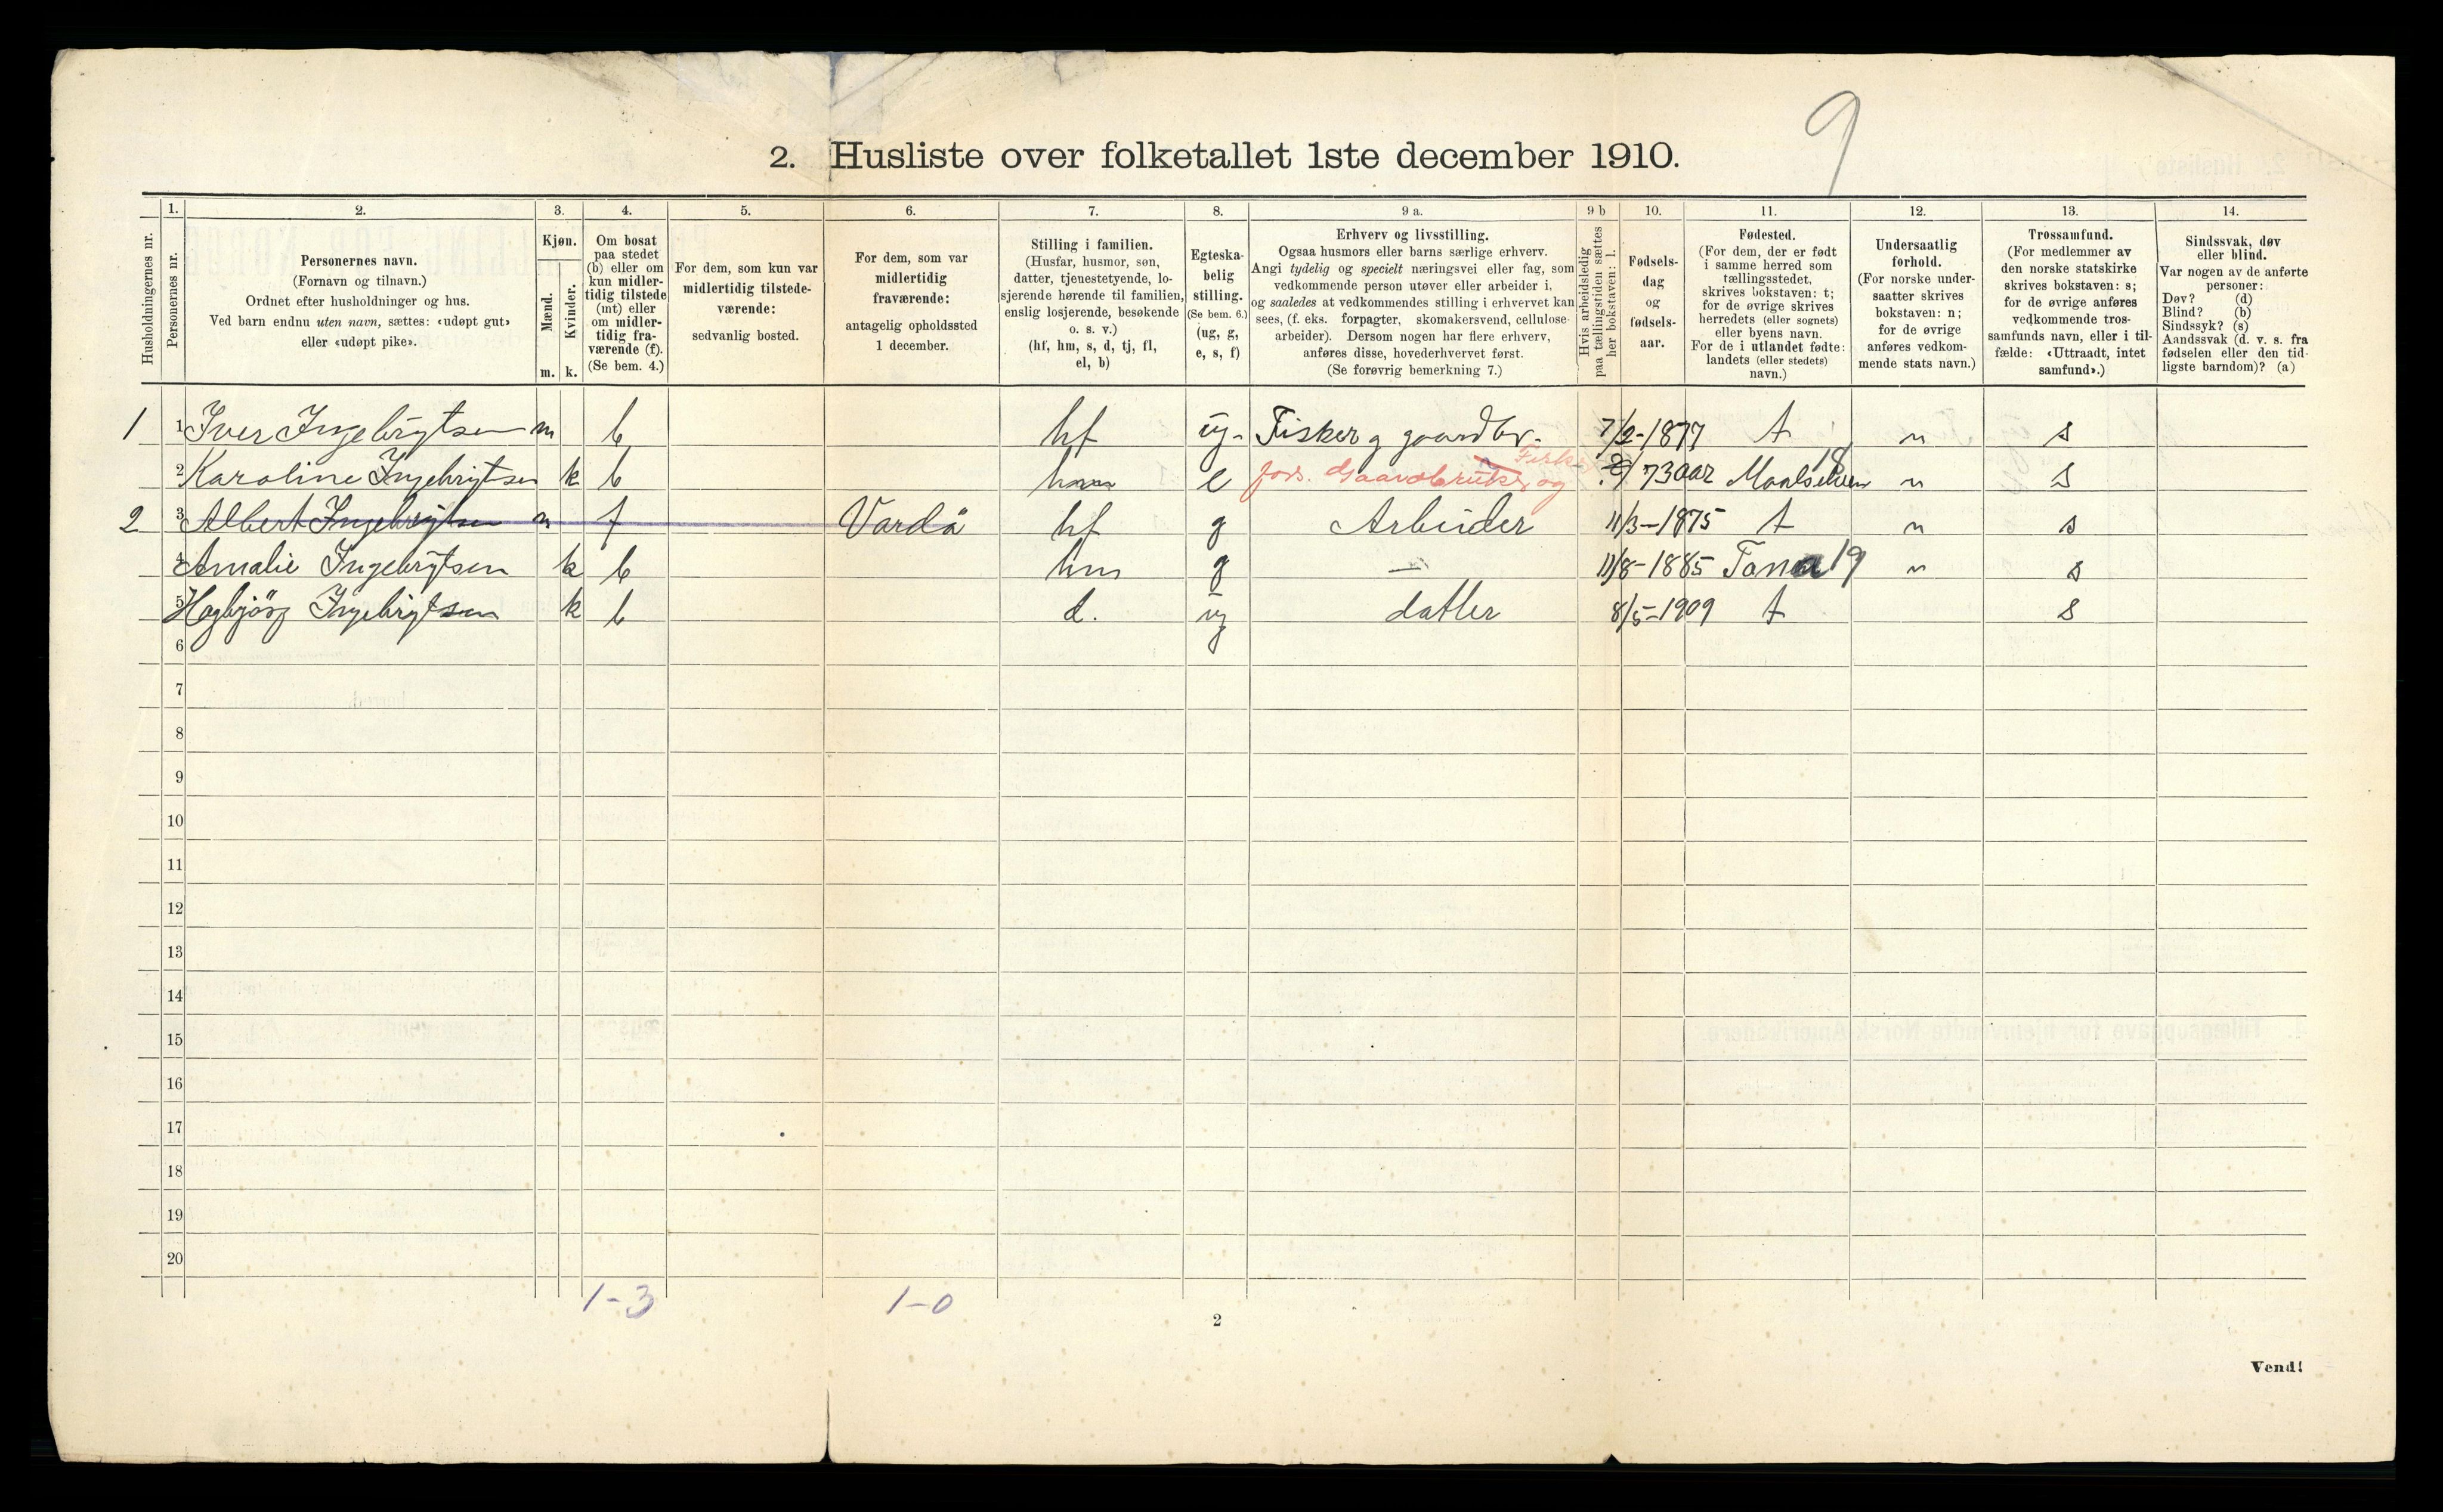 9
2. Husliste over folketallet 1ste december 1910.
Husholdningernes nr.
1. Personernes nr.
2. Personernes navn.
(Fornavn og tilnavn.)
Ordnet efter husholdninger og hus.
Ved barn endnu uten navn, sættes: «udøpt gut»
eller «udøpt pike».
3. Kjøn.
Mænd. Kvinder.
m. k.
4. Om bosat
paa stedet
(b) eller om
kun midler-
tidig tilstede
(mt) eller
om midler-
tidig fra-
værende (f).
(Se bem. 4.)
5. For dem, som kun var
midlertidig tilstede-
værende:
sedvanlig bosted.
6. For dem, som var
midlertidig
fraværende:
antagelig opholdssted
1 december.
7. Stilling i familien.
(Husfar, husmor, søn,
datter, tjenestetyende, lo-
sjerende hørende til familien,
enslig losjerende, besøkende
o. s. v.)
(hf, hm, s, d, tj, fl,
el, b)
8. Egteska-
belig
stilling.
(Se bem. 6.)
(ug, g,
e, s, f)
9 a. Erhverv og livsstilling.
Ogsaa husmors eller barns særlige erhverv.
Angi tydelig og specielt næringsvei eller fag, som
vedkommende person utøver eller arbeider i,
og saaledes at vedkommendes stilling i erhvervet kan
sees, (f. eks. forpagter, skomakersvend, cellulose-
arbeider). Dersom nogen har flere erhverv,
anføres disse, hovederhvervet først.
(Se forøvrig bemerkning 7.)
9 b Hvis arbeidsledig
paa tællingstiden sættes
her bokstaven: l.
10. Fødsels-
dag
og
fødsels-
aar.
11. Fødested.
(For dem, der er født
i samme herred som
tællingsstedet,
skrives bokstaven: t;
for de øvrige skrives
herredets (eller sognets)
eller byens navn.
For de i utlandet fødte:
landets (eller stedets)
navn.)
12. Undersaatlig
forhold.
(For norske under-
saatter skrives
bokstaven: n;
for de øvrige
anføres vedkom-
mende stats navn.)
13. Trossamfund.
(For medlemmer av
den norske statskirke
skrives bokstaven: s;
for de øvrige anføres
vedkommende tros-
samfunds navn, eller i til-
fælde: «Uttraadt, intet
samfund».)
14. Sindssvak, døv
eller blind.
Var nogen av de anførte
personer:
Døv? (d)
Blind? (b)
Sindssyk? (s)
Aandssvak (d. v. s. fra
fødselen eller den tid-
ligste barndom)? (a)
1 1 Iver Ingebrigtsen m b hf ug - Fisker g gaardbr. 7/2-1877 t n s
2 Karoline Ingebrigtsen k b hm e fors. Gaardbruker og Fisker 73 aar Maalselven 18 n s
2 3 Albert Ingebrigtsen m f Vardö hf g Arbeider 11/3-1875 t n s
4 Amalie Ingebrigtsen k b hm g — 11/8-1885 Tana 19 n s
5 Hagbjörg Ingebrigtsen k b d. ug datter 8/5-1909 t s
6
7
8
9
10
11
12
13
14
15
16
17
18
19
20
1-3 1-0
2
Vend!